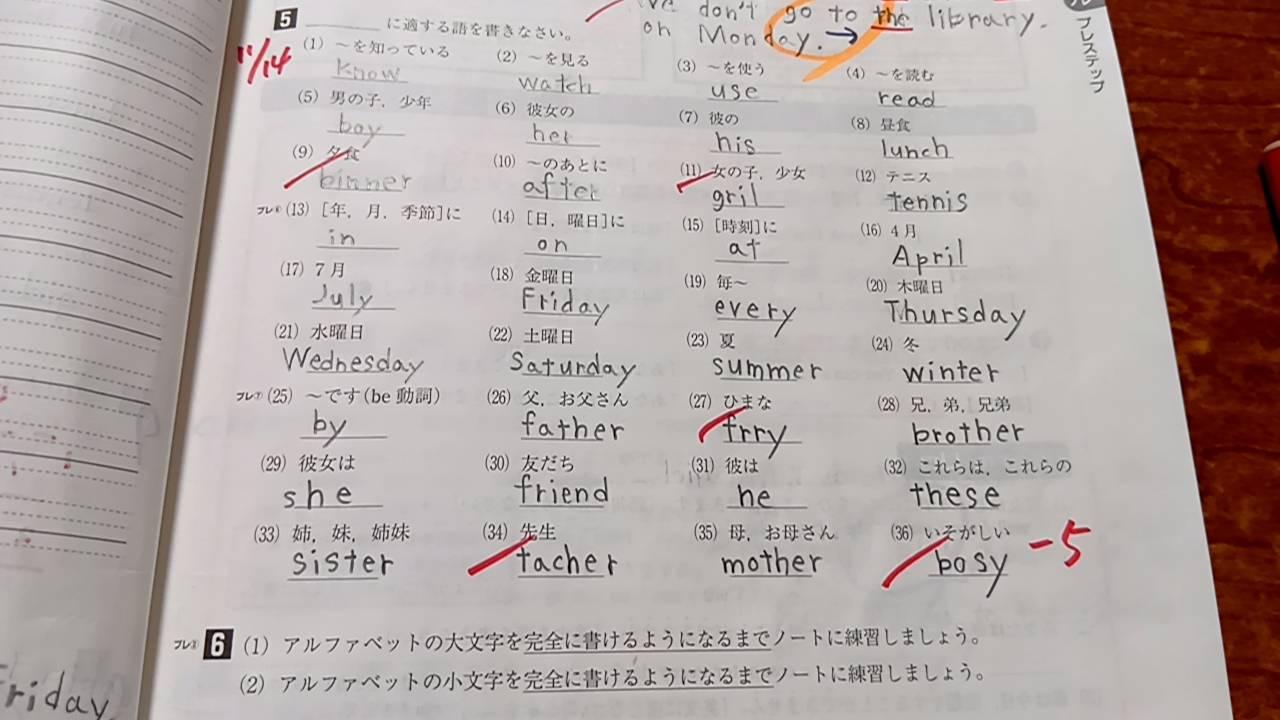 we don't go to the library.
on Monday. →
プレステップ
5 ______ に適する語を書きなさい。
11/14
(1) ～を知っている (2) ～を見る (3) ～を使う (4) ～を読む
know watch use read
(5) 男の子，少年 (6) 彼女の (7) 彼の (8) 昼食
boy her his lunch
(9) 夕食 (10) ～のあとに (11) 女の子，少女 (12) テニス
binner after gril tennis
(13) [年，月，季節]に (14) [日，曜日]に (15) [時刻]に (16) 4月
in on at April
(17) 7月 (18) 金曜日 (19) 毎～ (20) 木曜日
July Friday every Thursday
(21) 水曜日 (22) 土曜日 (23) 夏 (24) 冬
Wednesday Saturday summer winter
(25) ～です(be 動詞) (26) 父，お父さん (27) ひまな (28) 兄，弟，兄弟
by father frry brother
(29) 彼女は (30) 友だち (31) 彼は (32) これらは，これらの
she friend he these
(33) 姉，妹，姉妹 (34) 先生 (35) 母，お母さん (36) いそがしい
sister tacher mother bosy -5
6 (1) アルファベットの大文字を完全に書けるようになるまでノートに練習しましょう。
(2) アルファベットの小文字を完全に書けるようになるまでノートに練習しましょう。
Friday